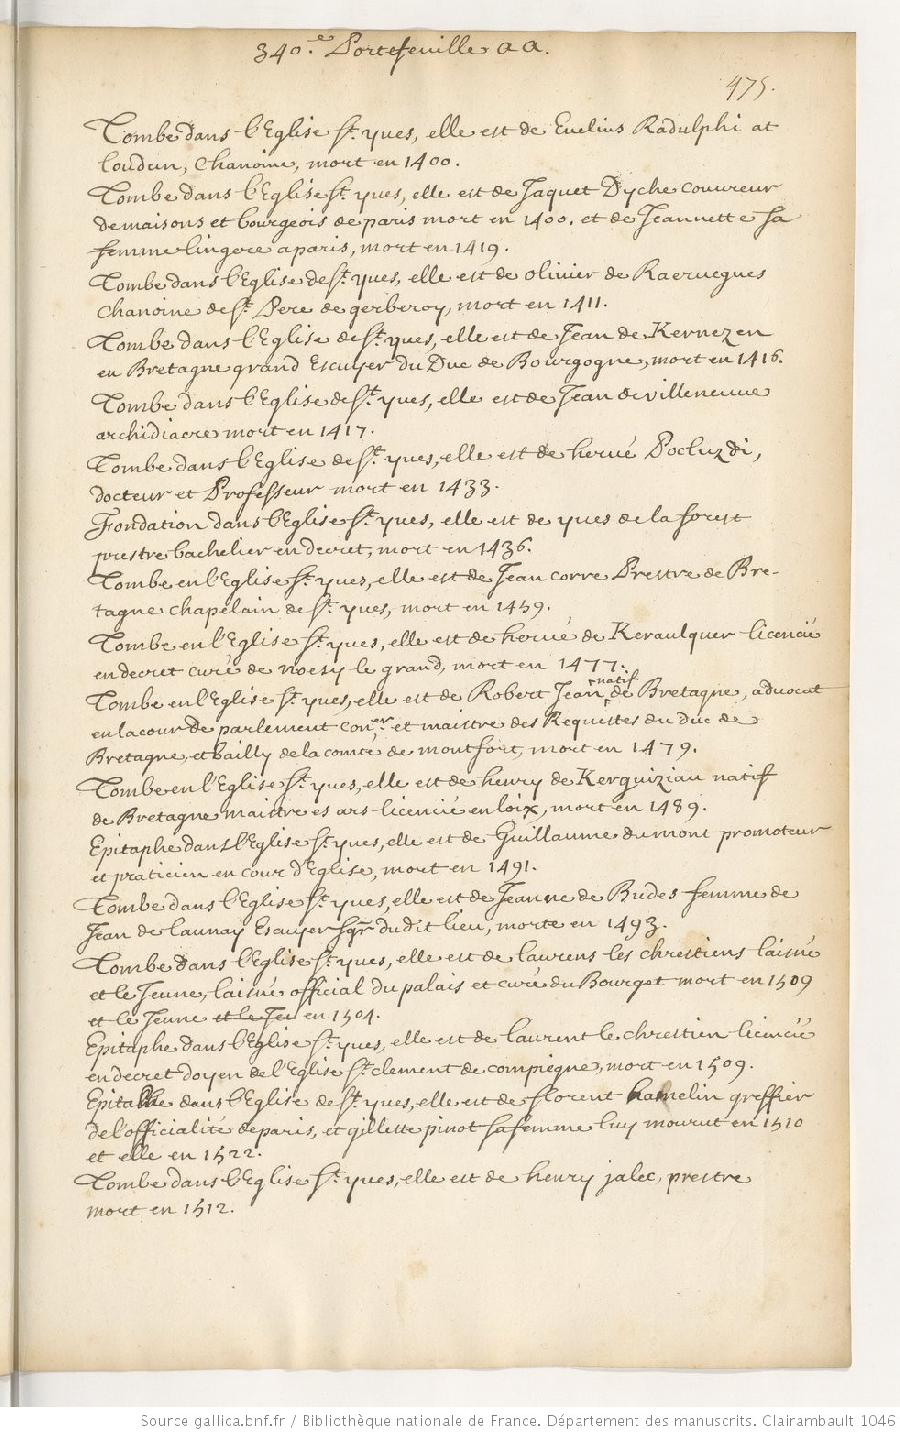 340.e Portefeuille aa.
475.
Tombe dans l'Eglise St. yves, elle est de Euelius Radulphi at
loudun, Chanoine, mort en 1400.
Tombe dans l'Eglise St. yves, elle est de Jaquet Dyche couvreur
de maisons et bourgeois de paris mort en 1400. et de Jeannette sa
femme lingere a paris, mort en 1419.
Tombe dans l'Eglise de St. yves, elle est de olivier de Kaerucgues
Chanoine de St. Pere de gerberoy, mort en 1411.
Tombe dans l'Eglise de St. yves, elle est de Jean de Kernezen
en Bretagne grand Escuyer du Duc de Bourgogne, mort en 1416.
Tombe dans l'Eglise de St. yves, elle est de Jean de villeneuve
archidiacre mort en 1417.
Tombe dans l'Eglise de St. yves, elle est de hervé Pocluzdi,
docteur et Professeur mort en 1433.
Fondation dans l'Eglise St. yves, elle est de yves de la forest
prestre bachelier en decret, mort en 1436.
Tombe en l'Eglise St. yves, elle est de Jean corre Prestre de Bre-
tagne chapelain de St. yves, mort en 1459.
Tombe en l'Eglise St. yves, elle est de hervé de Keraulquer licencié
en decret curé de noesy le grand, mort en 1477.
Tombe en l'Eglise St. yves, elle est de Robert Jean natif de Bretagne, advocat
en la cour de parlement con.er et maistre des Requestes du Duc de
Bretagne, et bailly de la comté de montfort, mort en 1479.
Tombe en l'Eglise St. yves, elle est de henry de Kerguizian natif
de Bretagne maistre es ars licencié en loix, mort en 1489.
Epitaphe dans l'Eglise St. yves, elle est de Guillaume dumont promoteur
et praticien en cour d'Eglise, mort en 1491.
Tombe dans l'Eglise St. yves, elle est de Jeanne de Budes femme de
Jean de launay Escuyer sgr. dudit lieu, morte en 1493.
Tombe dans l'Eglise St. yves, elle est de laurens les chrestiens laisné
et le Jeune, laisné official du palais et curé du Bourget mort en 1509
et le Jeune et le Jeu en 1504.
Epitaphe dans l'Eglise St. yves, elle est de laurent le chrestien licencié
en decret doyen de l'Eglise St. clement de compiegne, mort en 1509.
Epitaphe dans l'Eglise de St. yves, elle est de florent hamelin greffier
de l'officialité de paris, et gillette pinot sa femme luy mourut en 1510
et elle en 1522.
Tombe dans l'Eglise St. yves, elle est de henry jalec, prestre
mort en 1512.
Source gallica.bnf.fr / Bibliothèque nationale de France. Département des manuscrits. Clairambault 1046